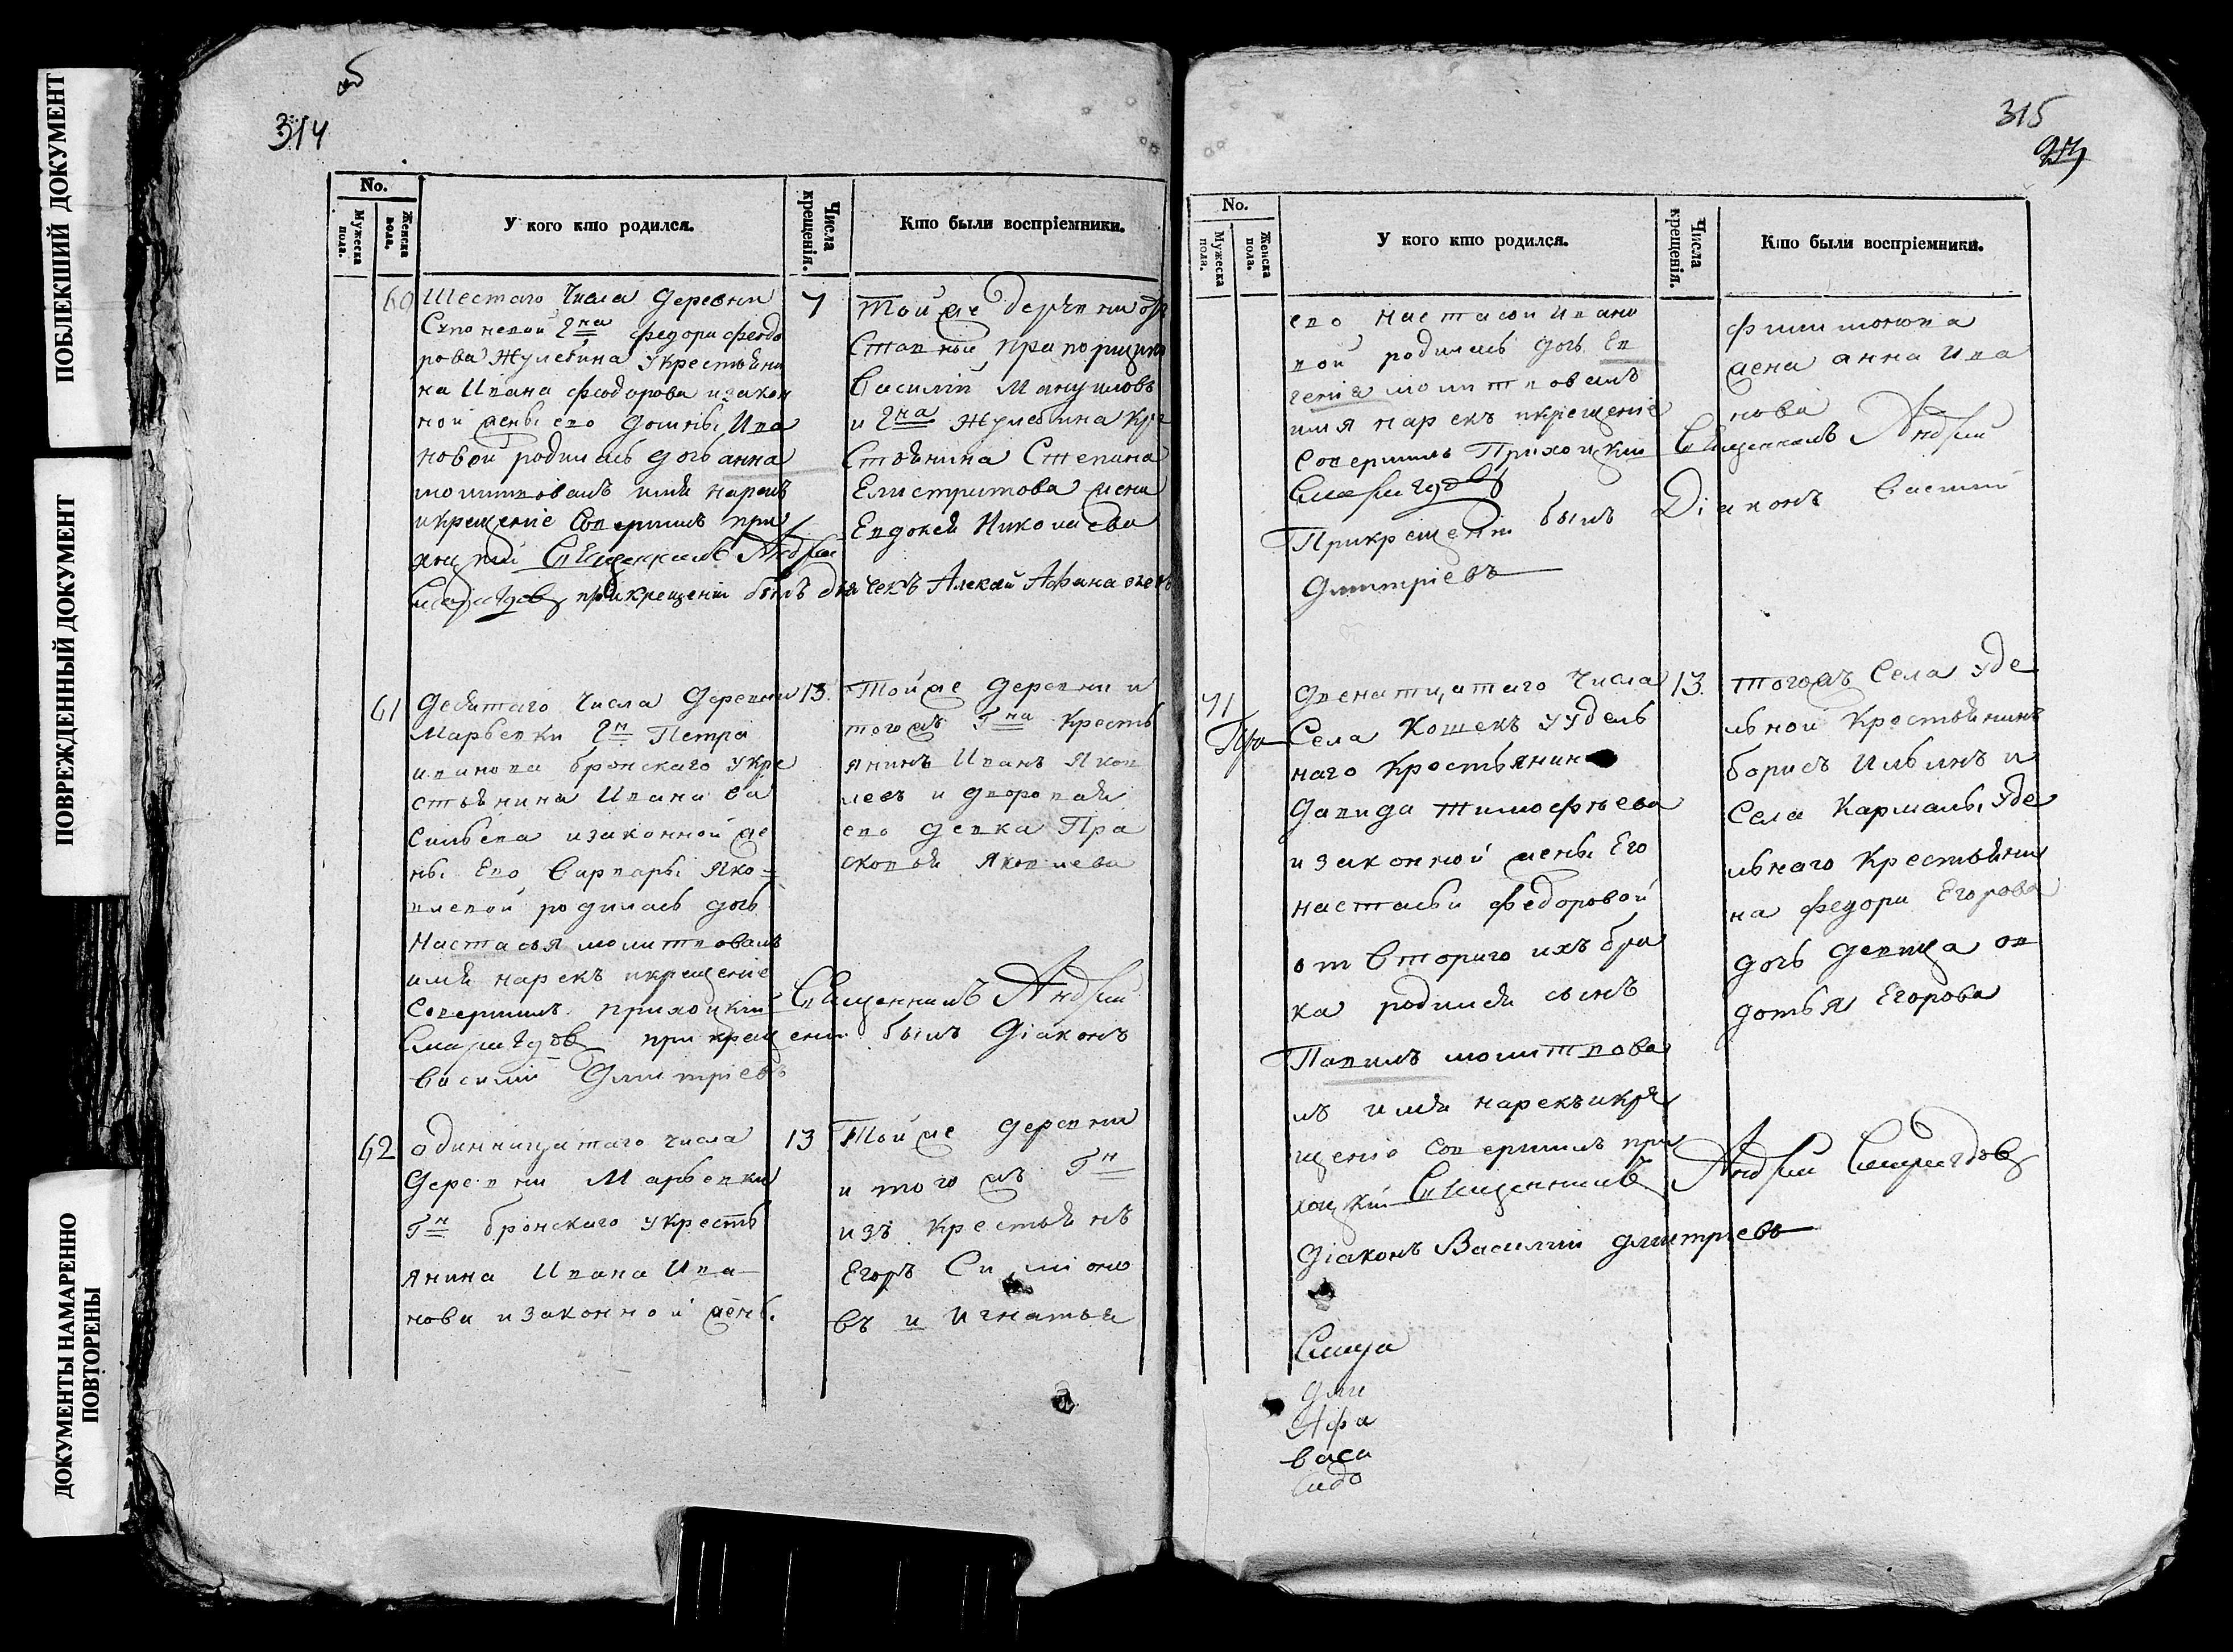 ПОБЛЕКШИЙ ДОКУМЕНТ
ПОВРЕЖДЕННЫЙ ДОКУМЕНТ
ДОКУМЕНТЫ НАМАРЕННО
ПОВТОРЕНЫ
314
No.
Мужеска пола.
Женска пола.
У кого кто родился.
Числа крещенія.
Кто были воспріемники.
60
Шестаго Числа деревни
гна федора феодо
рова Жулебина у крестьяни
на Ивана феодорова и закон
ной жены его домны Ива
новой родилась дочь анна
молитвовалъ имя нарекъ
и крещеніе Совершилъ при
Священникъ Андрей
при крещеніи былъ дьячекъ Алексей Афанасьевъ
7
Той же деревни от
ставной прапорщикъ
Василій Мануиловъ
и гна Жулебина кре
стьянина Степана
Елистратова жена
Евдокея Николаева
61
девятаго Числа Деревни
Марьевки гн Петра
иванова бронскаго у кре
стьянина Ивана ва
сильева и законной же
ны Его Варвары Яко=
влевой родилась дочь
Настасья молитвовалъ
имя нарекъ и крещеніе
Совершилъ приходкій Священникъ Андрей
при крещеніи былъ діаконъ
Василій Дмитріевъ
13.
Той же деревни и
тогожъ Гна Кресть
янинъ Иванъ Яков
левъ и дворовая
его девка Пра
сковья Яковлева
62
одиннацатаго числа
Деревни Марьевки
Гн бронскаго у кресть
янина Ивана Ива
нова и законной жены
13
Той же деревни
и тогожъ Гн
изъ крестьянъ
Егоръ Симіоно
въ и Игнатья
315
No.
Мужеска пола.
Женска пола.
У кого кто родился.
Числа крещенія.
Кто были воспріемники.
его настасьи Ивано
вой родилась дочь Ев
генія молитвовалъ
имя нарекъ и крещеніе
Совершилъ Приходкій Священникъ Андрей
При крещеніи былъ Діаконъ Василій
Дмитріевъ
филимонова
жена анна Ива
нова
71
двенатцатаго Числа
Села Кошекъ у удель
наго крестьянина
Давида тимофѣева
и законной жены Его
настасьи федоровой
от втораго ихъ бра
ка родился сынъ
Павилъ молитвова
лъ имя нарекъ и кре
щеніе совершилъ при
ходкій Священникъ Андрей
Діаконъ Василій дмитріевъ
13.
тогожъ Села уде
льной Крестьянинъ
борисъ Ильинъ и
Села Кармалы уде
льнаго Крестьяни
на федора Егорова
дочь девица ов
дотья Егорова
дми
Афа
васи